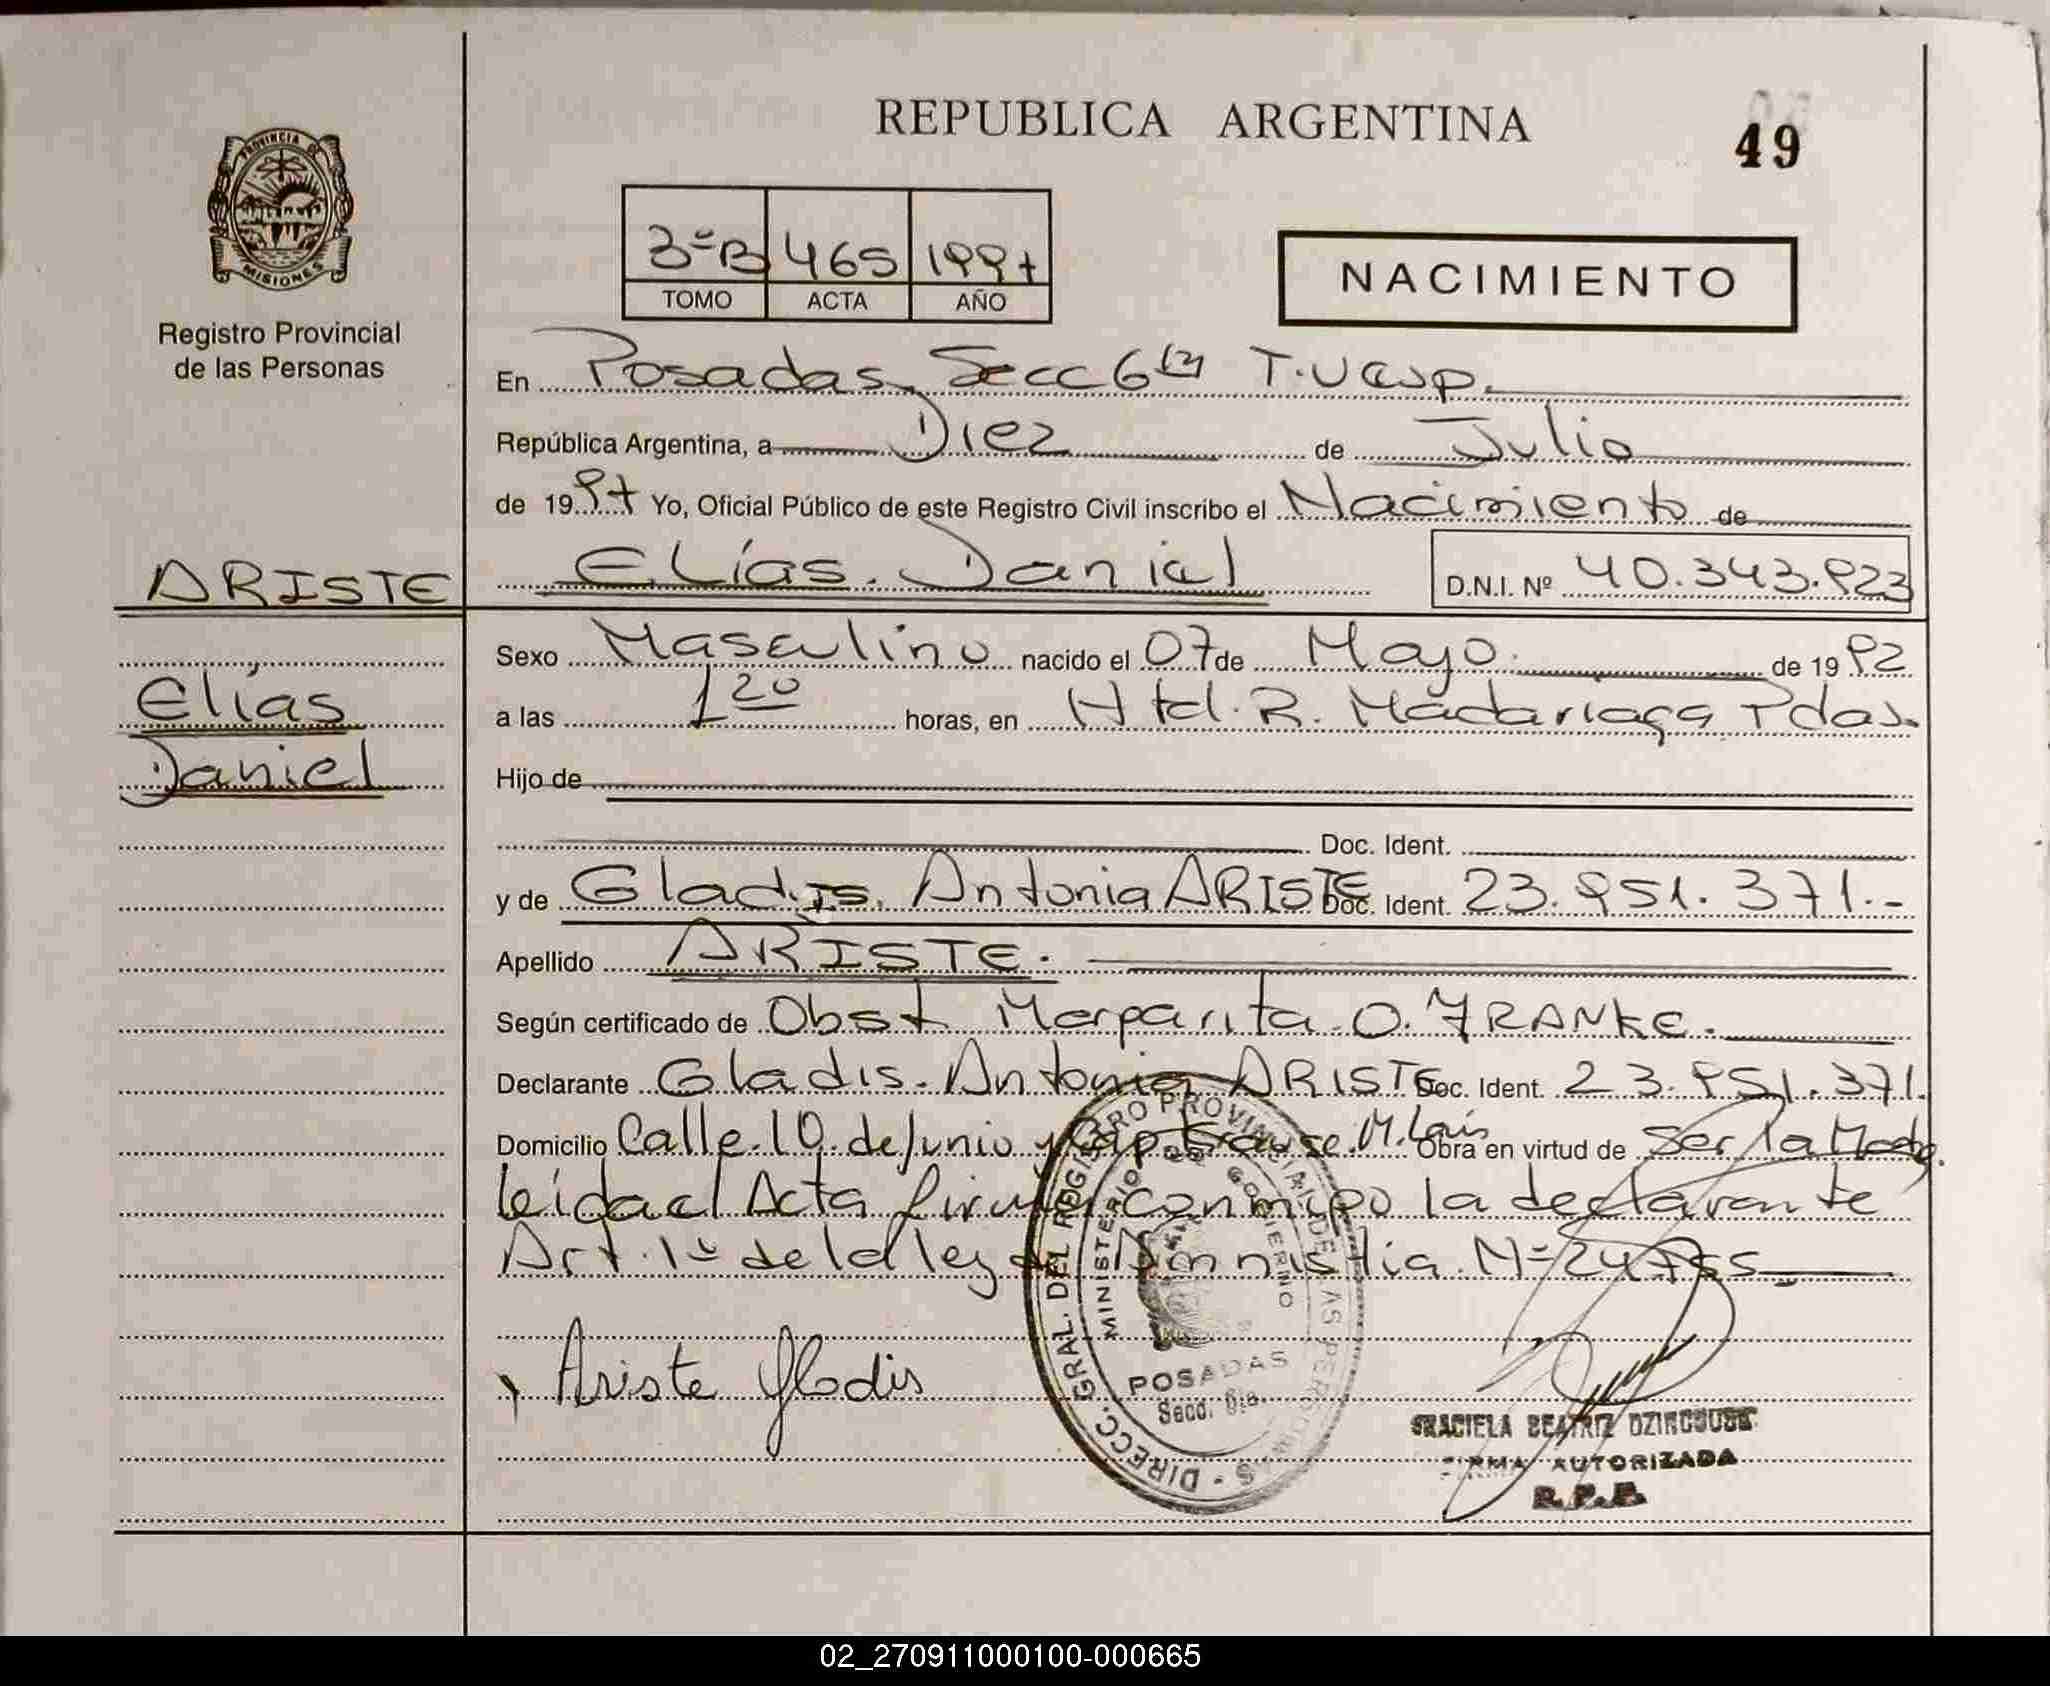 REPUBLICA ARGENTINA
49
PROVINCIA DE
MISIONES
Registro Provincial
de las Personas
3º B 465 1997
TOMO ACTA AÑO
NACIMIENTO
En Posadas, Secc 6ta T.Vesp.
República Argentina, a Diez de Julio
de 1997 Yo, Oficial Público de este Registro Civil inscribo el Nacimiento de
ARISTE
Elías Daniel D.N.I. Nº 40.343.923
Elías
Daniel
Sexo Masculino nacido el 07 de Mayo de 1992
a las 1 20 horas, en Htal. R. Madariaga Pdas.
Hijo de
Doc. Ident.
y de Gladis Antonia ARISTE Doc. Ident. 23.951.371.-
Apellido ARISTE.
Según certificado de Obst Margarita O. FRANKE.
Declarante Gladis Antonia ARISTE Doc. Ident. 23.951.371.
Domicilio Calle 10 de Junio y Cap Krause M. Lais Obra en virtud de Ser la Madre.
leída el Acta firma conmigo la declarante
Art. 1º de la ley de Amnistia Nº 24755
Ariste Gladis
DIRECC. GRAL. DEL REGISTRO PROVINCIAL DE LAS PERSONAS
MINISTERIO DE GOBIERNO
POSADAS
GRACIELA BEATRIZ
FIRMA AUTORIZADA
R.P.P.
02_270911000100-000665